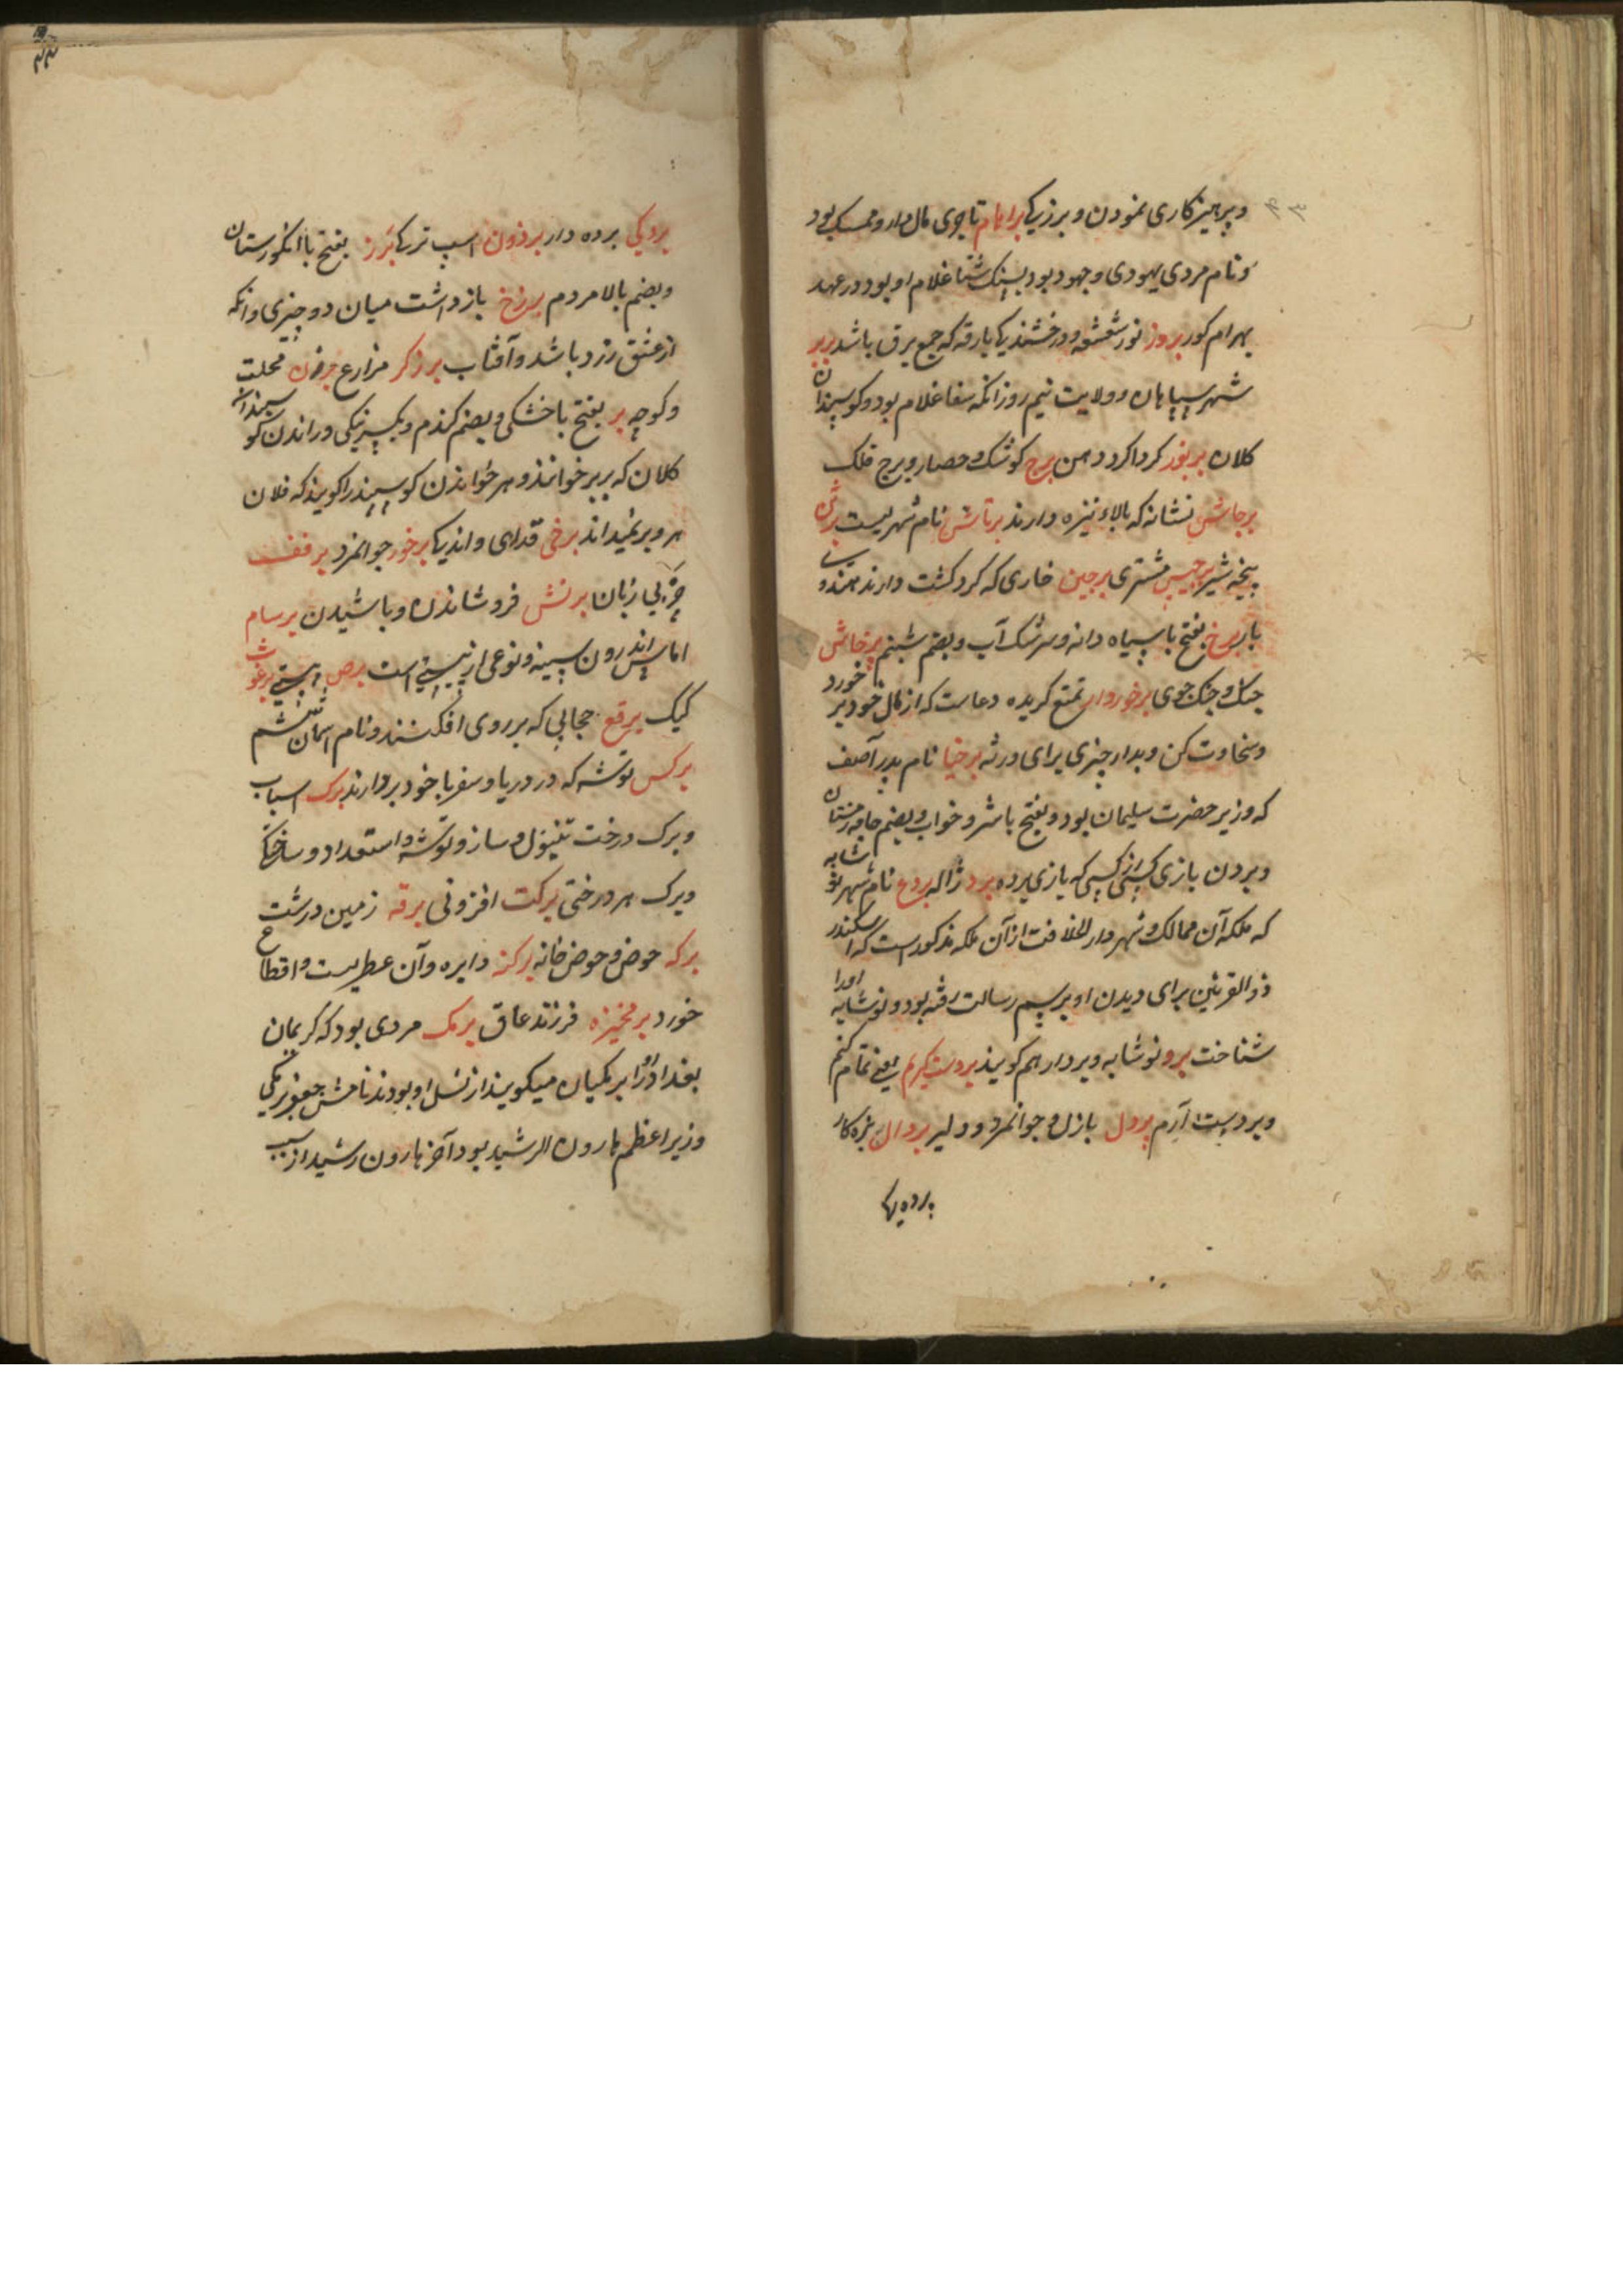 وپرهیزکاری نمودن و برزیکا براهام تاجری مال دار و ممسک بود
ونام مردی یهودی وجهود بود سنک شتا غلام او بود در عهد
بهرام کور بروز نور شعشعه ودرخشندیکا بارقه که جمع برق باشد بربر
شهر سپاهان وولایت نیم روز انکه سفا غلام بود وکوسپندان
کلان بربوز کرداکرد دهن برج کوشک وحصار وبرج فلک
برجاش نشانه که بالاء نیزه دارند برتاش نام شهریست برثن
پنجه شیر برجیس مشتری برجین خاری که کرد کشت دارند
بار برخ بفتح با سپاه دانه وسرشک آب وبضم شبنم برخاش
جنک وجنک جوی برخوردار تمتع کریده دعاست که از مال خود بر خورد
وسخاوت کن وبدار چیزی برای ورثه برخیا نام پدر آصف
که وزیر حضرت سلیمان بود وبفتح با شر وخواب وبضم جامه زمستان
وبردن بازی کسی از کسی که بازی برده برد ژاله بردع نام شهر نوشابه
که ملکه آن ممالک وشهر دار الخلافت از آن ملکه مذکور است که اسکندر
ذو القرنین برای دیدن او برسم رسالت رفته بود ونوشابه اورا
شناخت برو نوشابه وبردار هم کویند بردست کیرم یعنی تمام کنم
وبردست آرم پردل بازل وجوانمرد ودلیر بردال بزه کار
برده یکا
بردیکی برده دار برذون اسپ ترکا برز بفتح با انکورستان
وبضم بالا مردم برزخ بازداشت میان دو چیزی وانکه
از عشق زرد باشد وآفتاب برزکر مزارع برزن محلت
وکوچه بر بفتح با خشکی وبضم کندم وبکسر نیکی وراندن کوسپندان
کلان که بربر خوانند وهر خواندن کوسپند را کویند که فلان
هر وبر نمیداند برخی فدای واندیکا برخور جوانمرد برفف
چربی زبان برنش فروشاندن وباشیدن برسام
اماس اندرون سینه ونوعی از نیستی است برص پیستی برغوث
کیک برقع حجابی که بر روی افکنند ونام اسمان ششم
برکس توشه که در دریا وسفر با خود بردارند برک اسباب
وبرک درخت تنبول وساز وتوشه واستعداد وساختکا
وبرک هر درختی برکت افزونی برقه زمین درشت
برکه حوض وحوض خانه برکنه دایره وآن عطریست واقطاع
خورد برمخیزه فرزند عاق برمک مردی بود که کریمان
بغداد اورا برمکیان میکویند از نسل او بودند نامش جعفر برمکی
وزیر اعظم هارون الرشید بود آخر هارون رشید از سبب